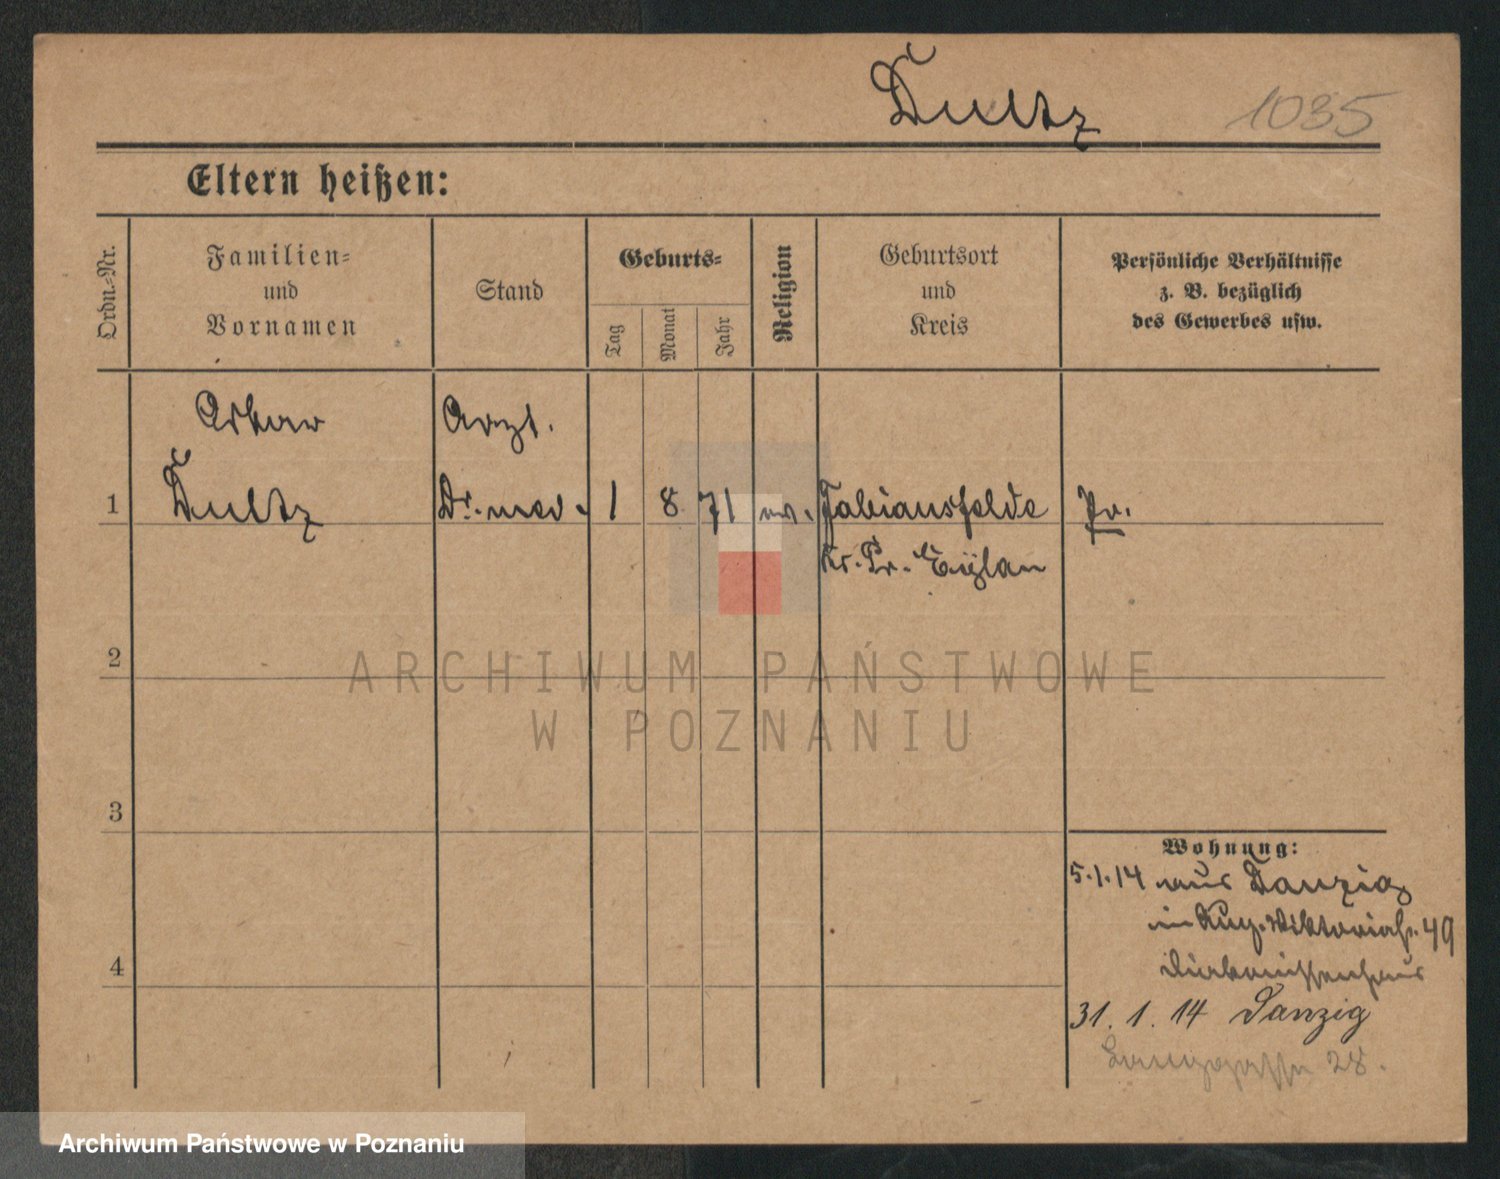 Dultz
1035
Eltern heißen:
Ordn.-Nr.
Familien-
und
Vornamen
Stand
Geburts-
Tag
Monat
Jahr
Religion
Geburtsort
und
Kreis
Persönliche Verhältnisse
z. B. bezüglich
des Gewerbes usw.
Oskar
Arzt.
1 Dultz Dr. med. 1 8 71 ev. Fabiansfelde Pr.
Kr. Pr. Eylau
2
3
4
Wohnung:
5.1.14 aus Danzig
in Aug. Viktoriastr. 49
Diakonissenhaus
31. 1. 14 Danzig
Langgasse 28.
ARCHIWUM PAŃSTWOWE
W POZNANIU
Archiwum Państwowe w Poznaniu